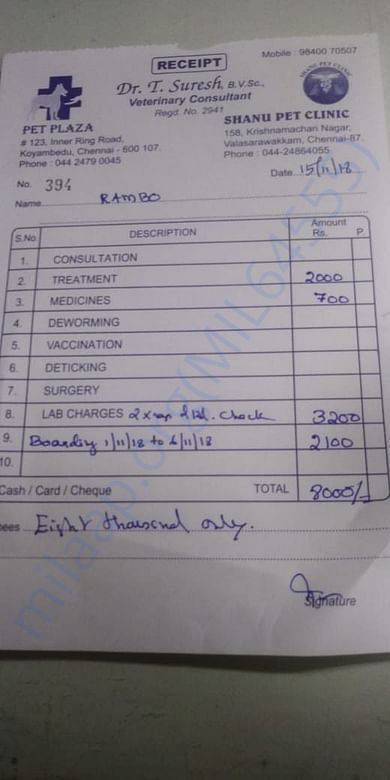 Mobile : 98400 70507
RECEIPT
SHANU PET CLINIC
Dr. T. Suresh, B.V.Sc.,
Veterinary Consultant
Regd. No. 2941
PET PLAZA
# 123, Inner Ring Road,
Koyambedu, Chennai - 600 107.
Phone : 044 2479 0045
SHANU PET CLINIC
158, Krishnamachari Nagar,
Valasarawakkam, Chennai-87.
Phone : 044-24864055
No. 394
Date 15/11/18
Name RAMBO
S.No. DESCRIPTION Amount Rs. P.
1. CONSULTATION
2. TREATMENT 2000
3. MEDICINES 700
4. DEWORMING
5. VACCINATION
6. DETICKING
7. SURGERY
8. LAB CHARGES 2 x ray & Bl. Check 3200
9. Boarding 1/11/18 to 6/11/18 2100
10.
Cash / Card / Cheque TOTAL 8000/-
ees Eight thousand only.
Signature
milaap.org(MIL64555)